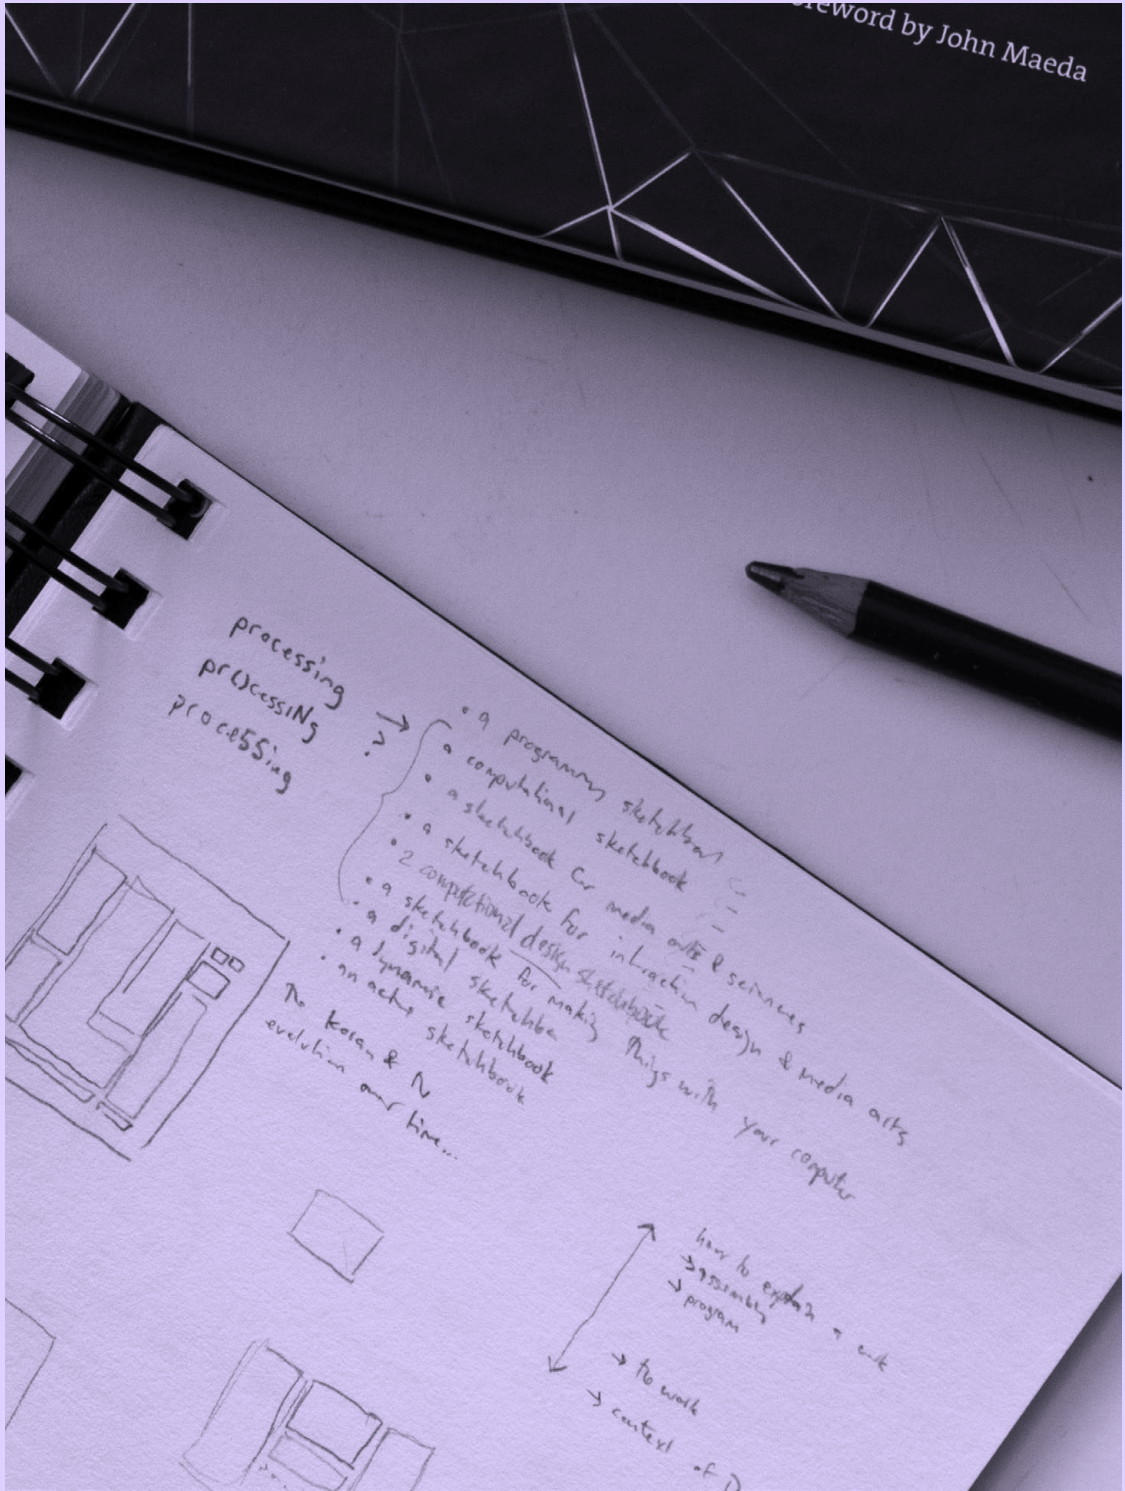 Foreword by John Maeda
processing
pr()cessiNg
proce55ing
→
?
• a programming sketchbook
• a computational sketchbook
• a sketchbook for media arts & sciences
• a sketchbook for interaction design & media arts
• a computational design sketchbook
• a sketchbook for making things with your computer
• a digital sketchbo
• a dynamic sketchbook
• an active sketchbook
The &
evolution over time...
how to explain a work
→ assembly
→ program
→ the work
→ context of